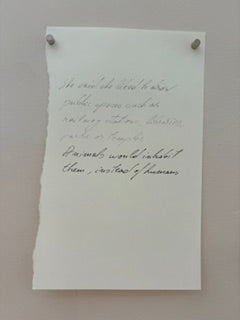 She said she liked to draw
public spaces such as
railway stations, libraries,
parks or temples
Animals would inhabit
them, instead of humans